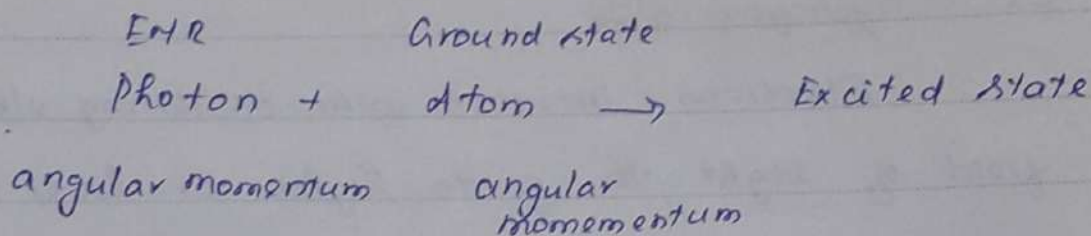 EMR Ground state
Photon + Atom → Excited state
angular momentum angular
momementum